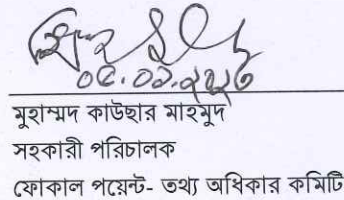 মুহাম্মদ কাউছার মাহমুদ
সহকারী পরিচালক
ফোকাল পয়েন্ট- তথ্য অধিকার কমিটি